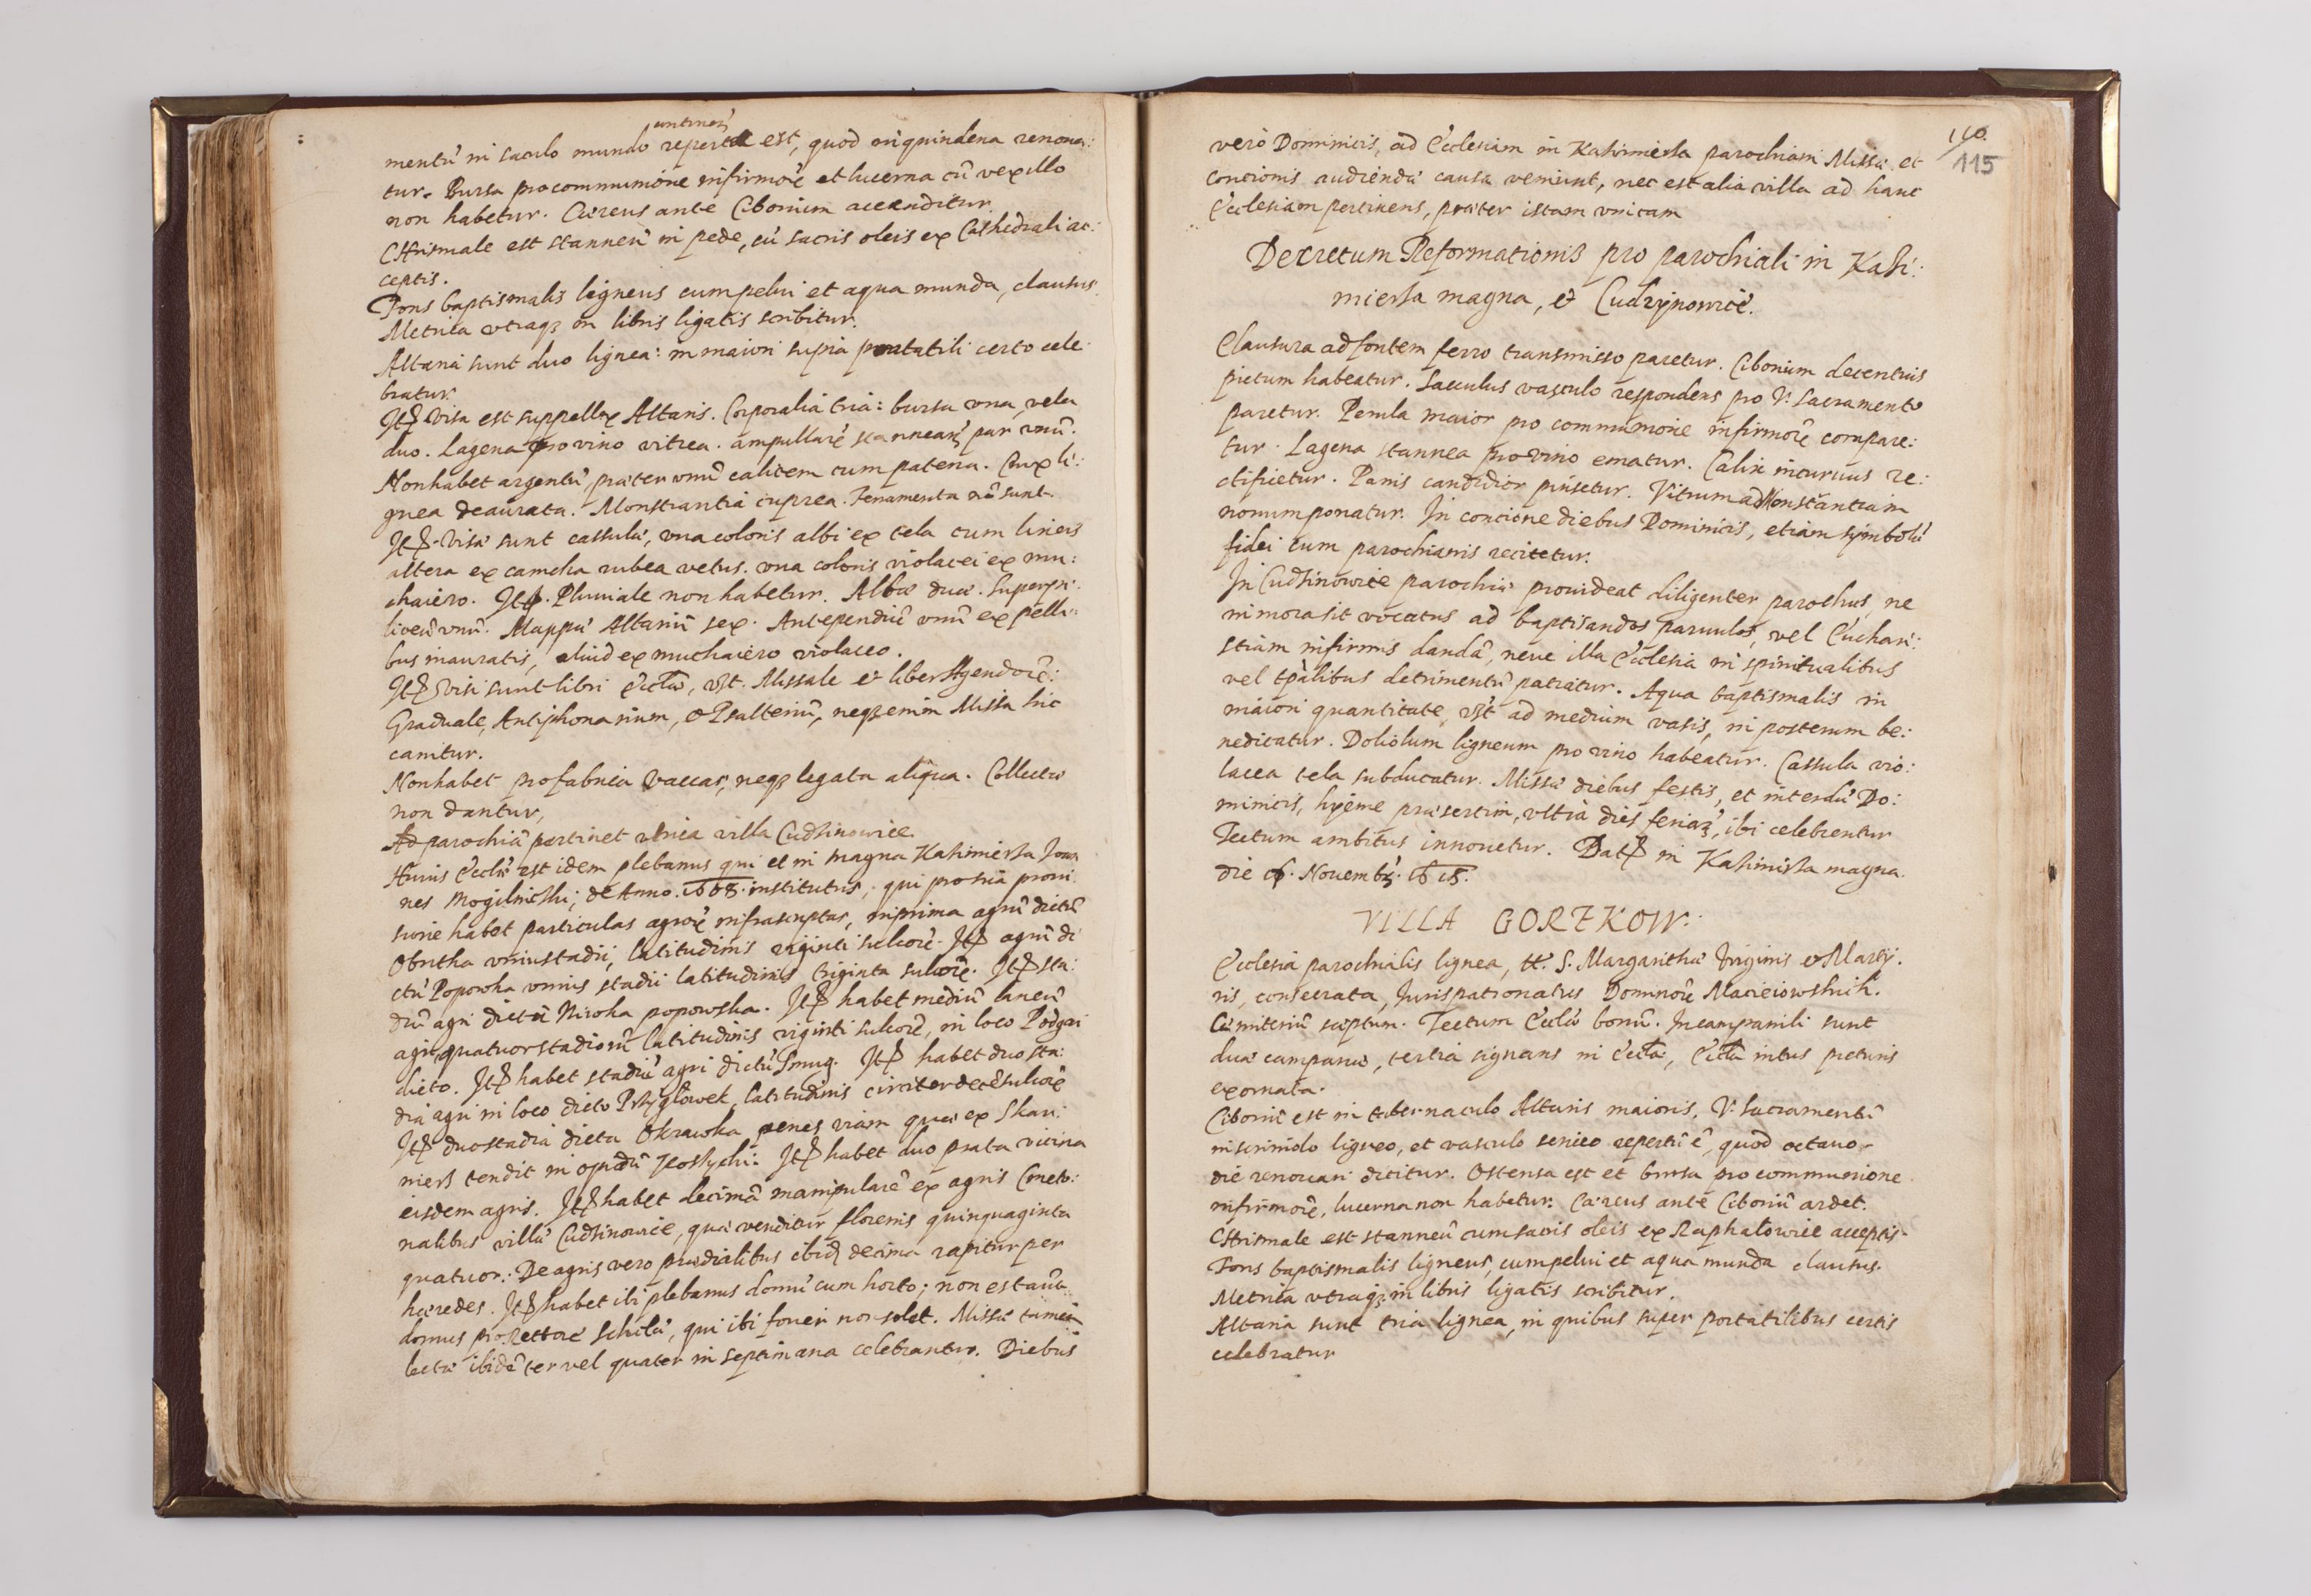 mentũ in saculo mundo repertũ est, quod in quindena renoua:
tur. Bursa pro communione infirmorũ et lucerna cũ vexillo
non habetur. Cæreus ante Cibonium accenditur.
Chrismale est stanneũ in pede, cũ sacris oleis ex Cathedrali ac:
ceptis.
Fons baptismalis ligneus cum pelui et aqua munda, clausus.
Metrica vtraq3 in libris ligatis scribitur.
Altaria sunt duo lignea: in maiori supra portatili certo cele:
bratur.
Itẽ visa est suppellex Altaris. Corporalia tria: bursa vna, vela
duo. Lagena pro vino vitrea. ampullarũ stannearũ par vnũ.
Non habet argentũ, præter vnũ calicem cum patena. Crux li:
gnea deaurata. Monstrantia cuprea. Tenamenta nõ sunt.
Itẽ visæ sunt casulæ, vna coloris albi ex tela cum lineis
altera ex camcha rubea vetus. vna coloris violacei ex mu:
chaiero. Itẽ. Pluuiale non habetur. Albæ duæ. Superpe:
liceũ vnũ. Mappæ Altariũ sex. Antependiũ vnũ ex pelli:
bus inauratis, aliud ex muchaiero violaceo.
Itẽ visi sunt libri Eccłæ, vſt. Missale et liber Agendorũ:
Graduale, Antiphonarium, & Psalteriũ, neq3 enim Missa hic
canitur.
Non habet pro fabrica vaccas, neq3 legata aliqua. Collectæ
non dantur,
Ad parochiã pertinet vnica villa Cudzinowice.
Huius Eccłæ est idem plebanus qui et in magna Kazimierza Joan
nes Mogilnicki, de Anno. 1608. institutus, qui pro sua proui
sione habet particulas agrorũ infrascriptas, inprima agrũ dictũ
Obritka vnius stadii, latitudinis viginti sulcorũ. Itẽ agrũ di
ctũ Popowka vnius stadii latitudinis triginta sulcorũ. Itẽ sta:
diũ agri dictũ Niwka popowska. Itẽ habet mediũ laneũ
agri, quatuor stadiorũ latitudinis viginti sulcorũ, in loco Podgai
dicto. Itẽ habet stadiũ agri dictũ Smug. Itẽ habet duo sta:
dia agri in loco dicto Przygłowek, latitudinis circiter decẽ sulcorũ
Itẽ duo stadia dicta Okrawka penes viam quæ ex Skar:
niers tendit in opidũ Koszycki: Itẽ habet duo prata vicina
eisdem agris. Itẽ habet decimã manipularẽ ex agris Cmeto:
nalibus villæ Cudzinowice, quæ venditur florenis quinquaginta
quatuor.: De agris vero prædialibus ibidẽ decima rapitur per
hæredes. Itẽ habet ibi plebanus domũ cum horto; non est aũt
domus pro Rectore Scholæ, qui ibi foueri non solet. Missæ tamen
lectæ ibidẽ ter vel quater in septimana celebrantur. Diebus
110.
115
vero Dominicis, ad Ecclesiam in Kazimierza parochiani Missæ et
Concionis audiendæ causa veniunt, nec est alia villa ad hanc
Ecclesiam pertinens, præter istam vnicam
Decretum Reformationis pro parochiali in Kazi:
mierza magna, et Cudzynowice.
Clausura ad fontem ferro transmisso paretur. Cibonium decentius
pictum habeatur. Sacculus vasculo respondens pro V. Sacramento
paretur. Penula maior pro communione infirmorũ compare:
tur. Lagena stannea pro vino ematur. Calix incuruus re:
ctificetur. Panis candidior pinsetur. Vitrum ad Monstrantiam
nouum ponatur. In concione diebus Dominicis, etiam symbolũ
fidei cum parochianis recitetur.
In Cudzinowice parochiæ prouideat diligenter parochus, ne
in mora sit vocatus ad baptisandos paruulos, vel Euchari:
stiam infirmis dandã, neue illa Ecclesia in spiritualibus
vel tp̃alibus detrimentũ patiatur. Aqua baptismalis in
maiori quantitate, vſt ad medium vasis, in posterum be:
nedicatur. Doliolum ligneum pro vino habeatur. Casula vio:
lacea tela subducatur. Missæ diebus festis, et interdũ Do:
minicis, hyeme præsertim, vltra dies feriarũ, ibi celebrentur
Tectum ambitus innouetur. Datũ in Kazimierza magna.
die 6. Nouembr. 1618.
VILLA GORZKOW.
Ecclesia parochialis lignea, tt. S. Margarithæ Virginis & Marty:
ris, consecrata, Juris patronatus Dominorũ Macieiowskich.
Cæmiteriũ sæptum. Tectum Eccłæ bonũ. In campanili sunt
duæ campanæ, tertia signans in Eccła, Eccła intus picturis
exornata.
Ciboriũ est in tabernaculo Altaris maioris. V. Sacramentũ
in scriniolo ligneo, et vasculo sericeo repertũ ẽ, quod octauo
die renouari dicitur. Ostensa est et bursa pro communione
infirmorũ, lucerna non habetur. Cæreus ante Ciboriũ ardet.
Chrismale est stanneũ cum sacris oleis ex Raphałowice acceptis.
Fons baptismalis ligneus, cum pelui et aqua munda clausus.
Metrica vtraq3 in libris ligatis scribitur.
Altaria sunt tria lignea, in quibus super portatilibus certis
celebratur